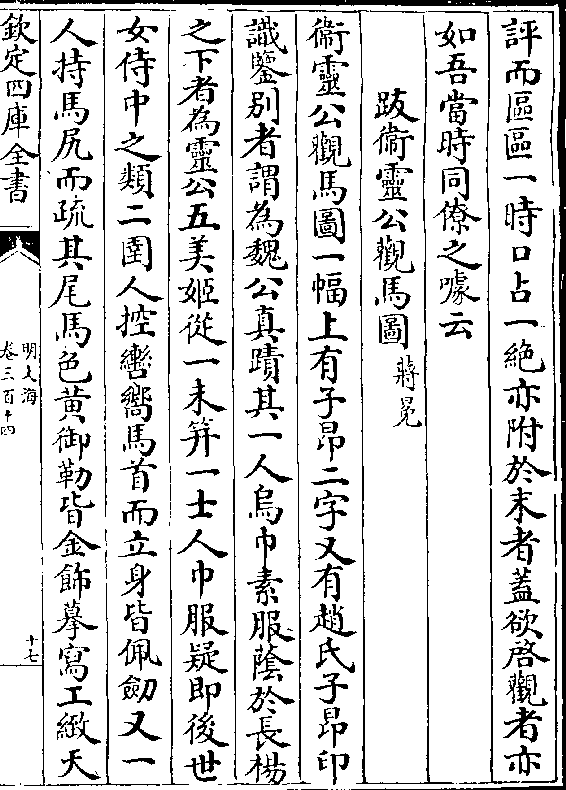 評而區區一時口占一絶亦附於末者蓋欲啓觀者亦
如吾當時同僚之噱云
跋衞靈公觀馬圖 蔣冕
衞靈公觀馬圖一幅上有子昂二字又有趙氏子昂印
識鑒别者謂為魏公真蹟其一人烏巾素服蔭於長楊
之下者為靈公五美姬從一未笄一士人巾服疑即後世
女侍中之類二圉人控轡嚮馬首而立身皆佩劒又一
人持馬尻而疏其尾馬色黄御勒皆金飾摹寫工緻天
欽定四庫全書
明文海
卷三百十四
十七